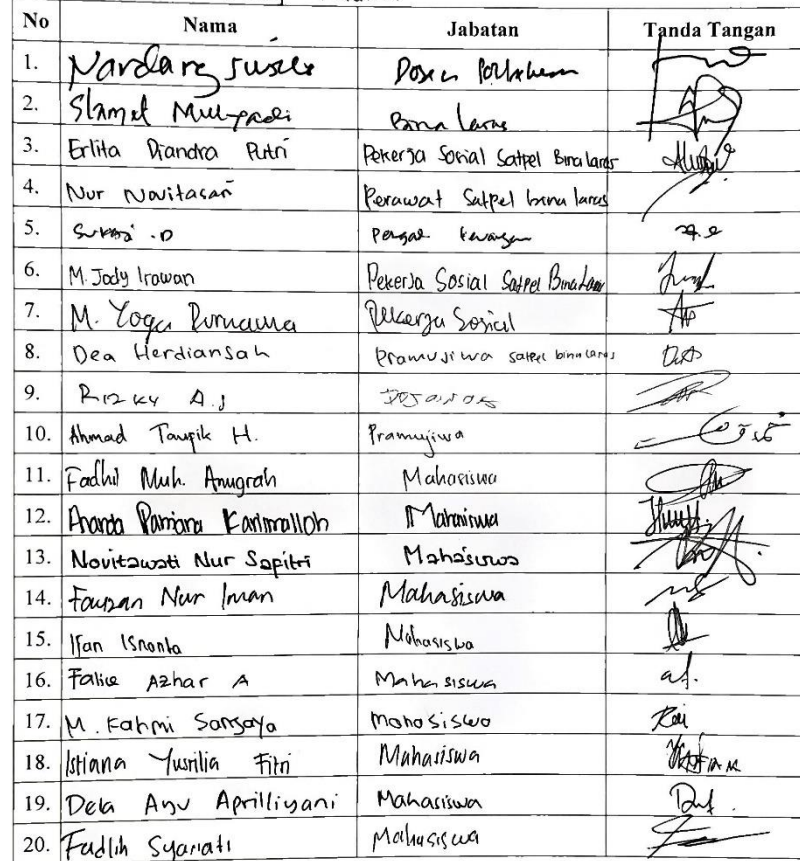 No Nama Jabatan Tanda Tangan
1. Nandang Susila Dosen
2. Slamet Mulyadi Bina Laras
3. Erlita Diandra Putri Pekerja Sosial Satpel Bina laras
4. Nur Novitasari Perawat Satpel bina laras
5.
6. M. Jody Irawan Pekerja Sosial Satpel Bina Laras
7. M. Yoga Purnama Pekerja Sosial
8. Dea Herdiansah Pramujiwa satpel bina laras
9. Rizky A.J
10. Ahmad Taupik H. Pramujiwa
11. Fadhil Muh. Anugrah Mahasiswa
12. Karimalloh Mahasiswa
13. Novitawati Nur Sapitri Mahasiswa
14. Fauzan Nur Iman Mahasiswa
15. Ifan Isnanta Mahasiswa
16. Azhar A Mahasiswa
17. M. Fahmi Sansaya Mahasiswa
18. Istiana Yusrilia Fitri Mahasiswa
19. Dela Ayu Aprilliyani Mahasiswa
20. Fadlih Syariati Mahasiswa